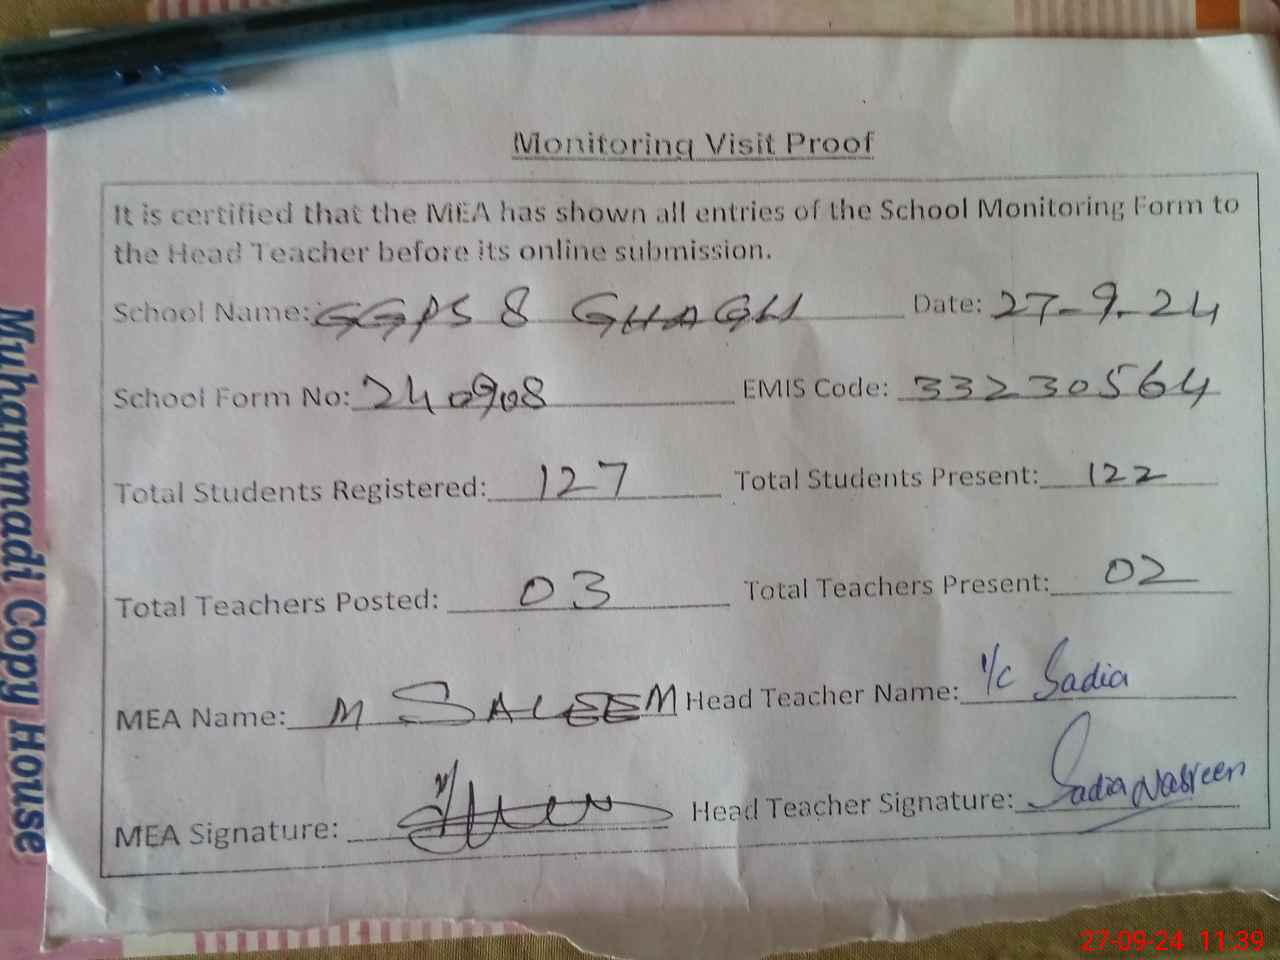 Monitoring Visit Proof
It is certified that the MEA has shown all entries of the School Monitoring Form to
the Head Teacher before its online submission.
School Name: GGPS 8 GHAGH Date: 27-9-24
School Form No: 240908 EMIS Code: 33230564
Total Students Registered: 127 Total Students Present: 122
Total Teachers Posted: 03 Total Teachers Present: 02
MEA Name: M SALEEM Head Teacher Name: I/C Sadia
MEA Signature: Head Teacher Signature: Sadia Nasreen
Muhammadi Copy House
27-09-24 11:39